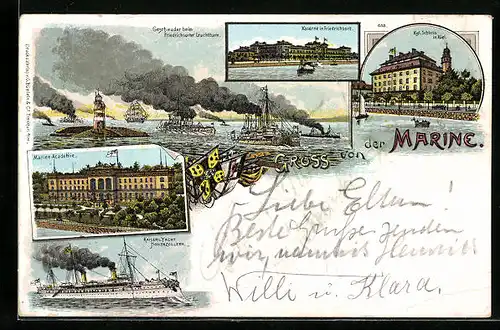 Geschwader beim
Friedrichsorter Leuchtturm.
Kaserne in Friedrichsort.
Kgl. Schloss
in Kiel.
Marine-Academie.
Gruss von
der Marine.
Kaiserl. Yacht
Hohenzollern.
Liebe Eltern!
Beste Grüße senden
wir
Willi u. Klara.